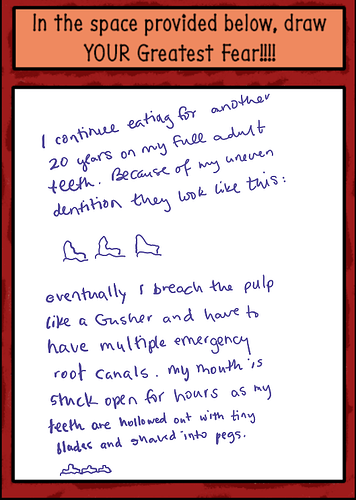 In the space provided below, draw
YOUR Greatest Fear!!!!
I continue eating for another
20 years on my full adult
teeth. Because of my uneven
dentition they look like this:
eventually I breach the pulp
like a Gusher and have to
have multiple emergency
root canals. my mouth is
stuck open for hours as my
teeth are hollowed out with tiny
blades and shaved into pegs.